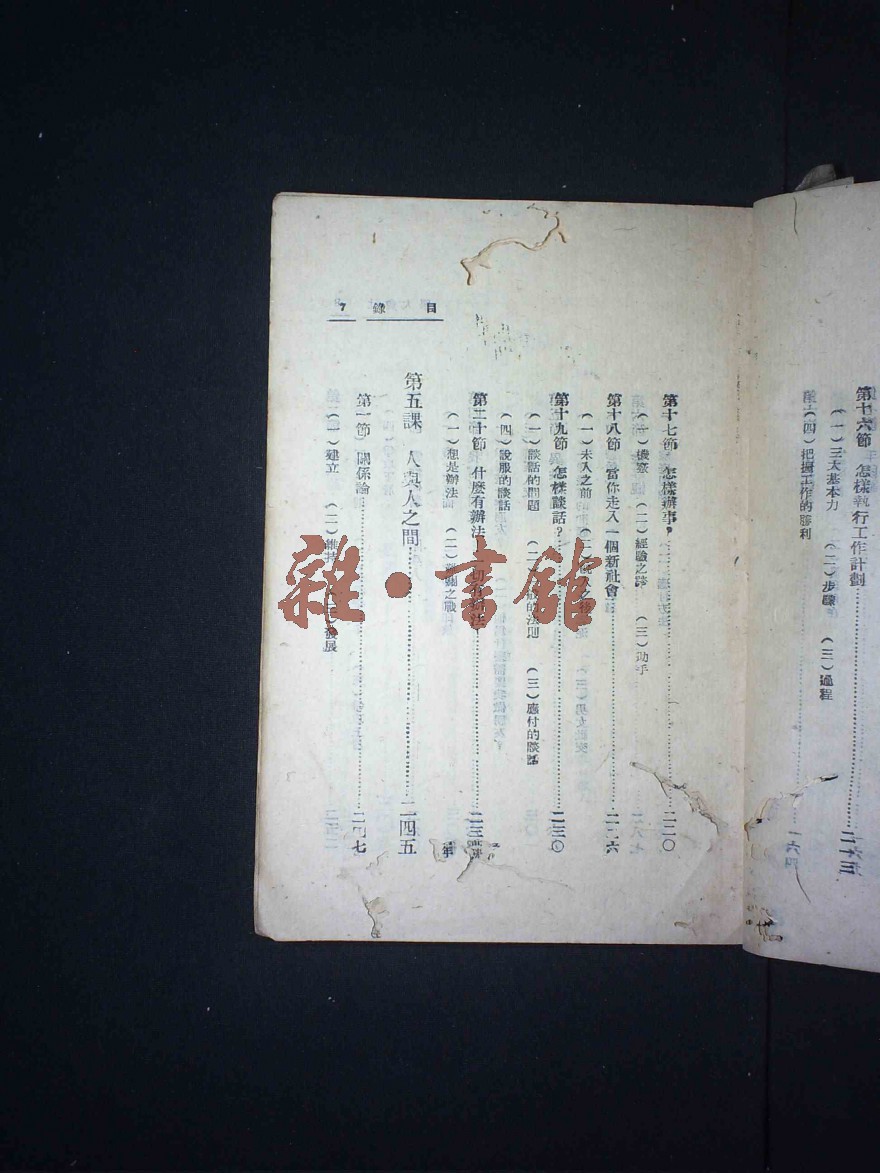 第十六節　怎樣執行工作計劃
（一）三大基本力　（二）步驟　（三）過程
（四）把握工作的勝利
目錄　7
第十七節　怎樣辦事？　二二〇
（二）經驗之談　（三）動手
第十八節　當你走入一個新社會　二二六
（一）未入之前
第十九節　怎樣談話？　二三〇
（一）談話的問題　（三）應付的談話
（四）說服的談話
第二十節　什麼有辦法
（一）想是辦法
第五課　人與人之間　二四五
第一節　關係論　二四七
（一）建立　（二）維持　發展
雜·書館